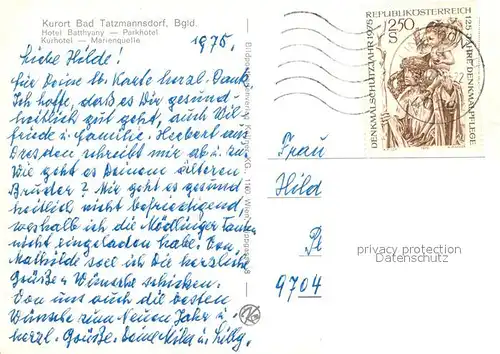 Kurort Bad Tatzmannsdorf, Bgld.
Hotel Batthyany — Parkhotel
Kurhotel — Marienquelle
1975.
Liebe Hilde!
Für Deine lb. Karte herzl. Dank.
Ich hoffe, daß es Dir gesund-
heitlich gut geht, auch Wil-
friede u. Familie. Herbert aus
Dresden schreibt mir ab u. zu.
Wie geht es Deinem älteren
Bruder? Mir geht es gesund
heitlich nicht befriedigend
weshalb ich die Mödlinger Tanten
nicht eingeladen habe. Von
Mathilde soll ich Dir herzliche
Grüße u Wünsche schicken.
Von uns auch die besten
Wünsche zum Neuen Jahr u.
herzl. Grüße. Deine Mila u. Lilly.
REPUBLIK ÖSTERREICH
2.50
S
DENKMALSCHUTZJAHR 1975
125 JAHRE DENKMALPFLEGE
Frau
Hild
Pe
9704
privacy protection
Datenschutz